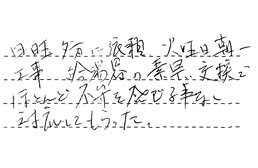 日曜夕方に依頼 火曜日朝一
工事 給湯器の素早い交換で
ほとんど不楽を感じる事なく
対応してもらった。